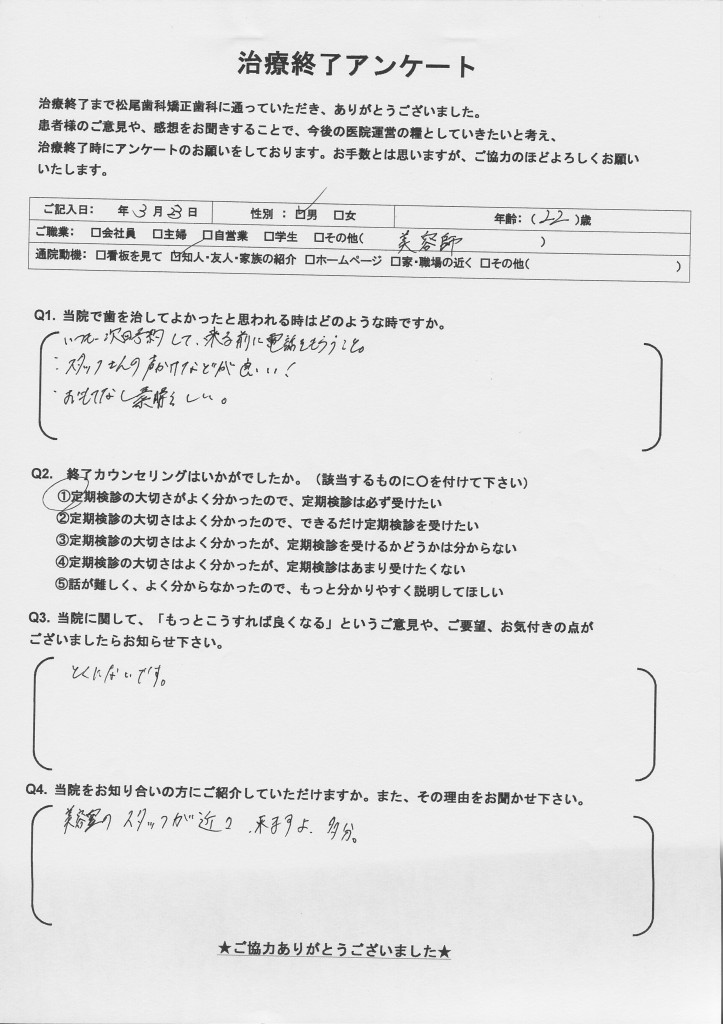 治療終了アンケート
治療終了まで松尾歯科矯正歯科に通っていただき、ありがとうございました。
患者様のご意見や、感想をお聞きすることで、今後の医院運営の糧としていきたいと考え、
治療終了時にアンケートのお願いをしております。お手数とは思いますが、ご協力のほどよろしくお願い
いたします。
ご記入日： 年 3 月 23 日 性別 ： ☑男 □女 年齢：（ 22 ）歳
ご職業： □会社員 □主婦 □自営業 □学生 □その他（ 美容師 ）
通院動機：□看板を見て ☑知人・友人・家族の紹介 □ホームページ □家・職場の近く □その他（ ）
Q1. 当院で歯を治してよかったと思われる時はどのような時ですか。
次回予約して、来る前に電話をもらうこと。
・スタッフさんの声かけなどが良いい！
・おもてなし素晴らしい。
Q2. 終了カウンセリングはいかがでしたか。（該当するものに〇を付けて下さい）
①定期検診の大切さがよく分かったので、定期検診は必ず受けたい
②定期検診の大切さはよく分かったので、できるだけ定期検診を受けたい
③定期検診の大切さはよく分かったが、定期検診を受けるかどうかは分からない
④定期検診の大切さはよく分かったが、定期検診はあまり受けたくない
⑤話が難しく、よく分からなかったので、もっと分かりやすく説明してほしい
Q3. 当院に関して、「もっとこうすれば良くなる」というご意見や、ご要望、お気付きの点が
ございましたらお知らせ下さい。
とくにないです。
Q4. 当院をお知り合いの方にご紹介していただけますか。また、その理由をお聞かせ下さい。
美容室のスタッフが近々来ますよ、多分。
★ご協力ありがとうございました★